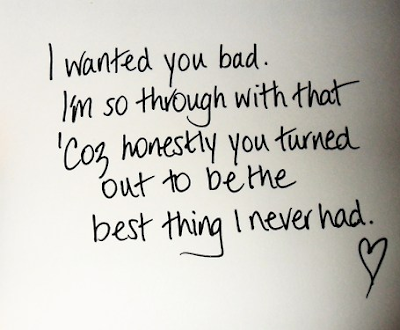 I wanted you bad.
I'm so through with that
'Coz honestly you turned
out to be the
best thing I never had.